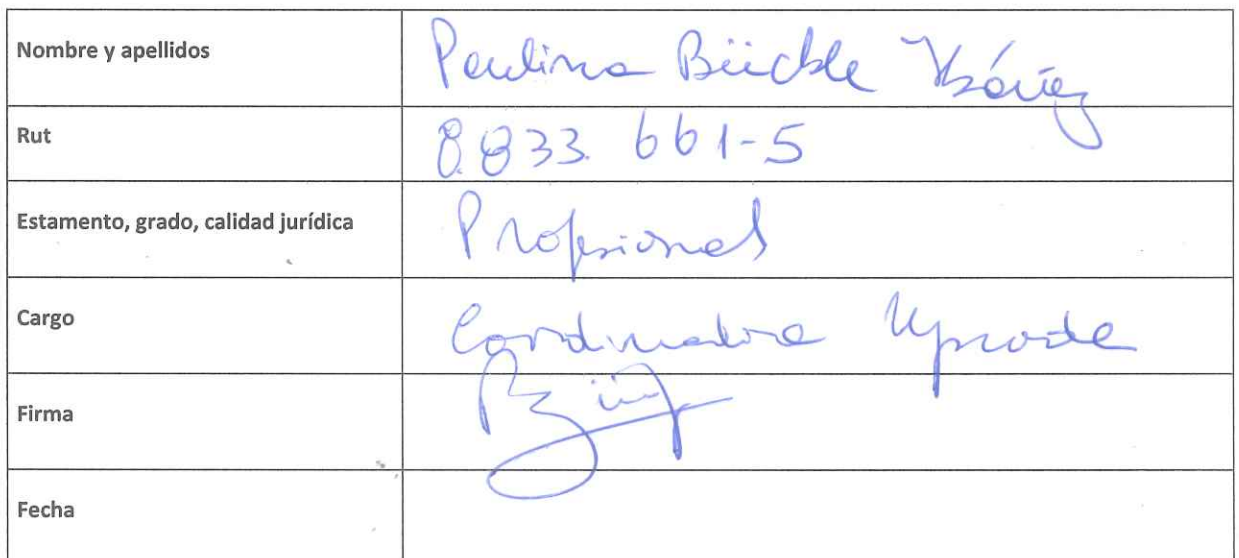 Nombre y apellidos Paulina Büchle Ybáñez
Rut 8.833.661-5
Estamento, grado, calidad jurídica Profesional
Cargo Coordinadora
Firma
Fecha